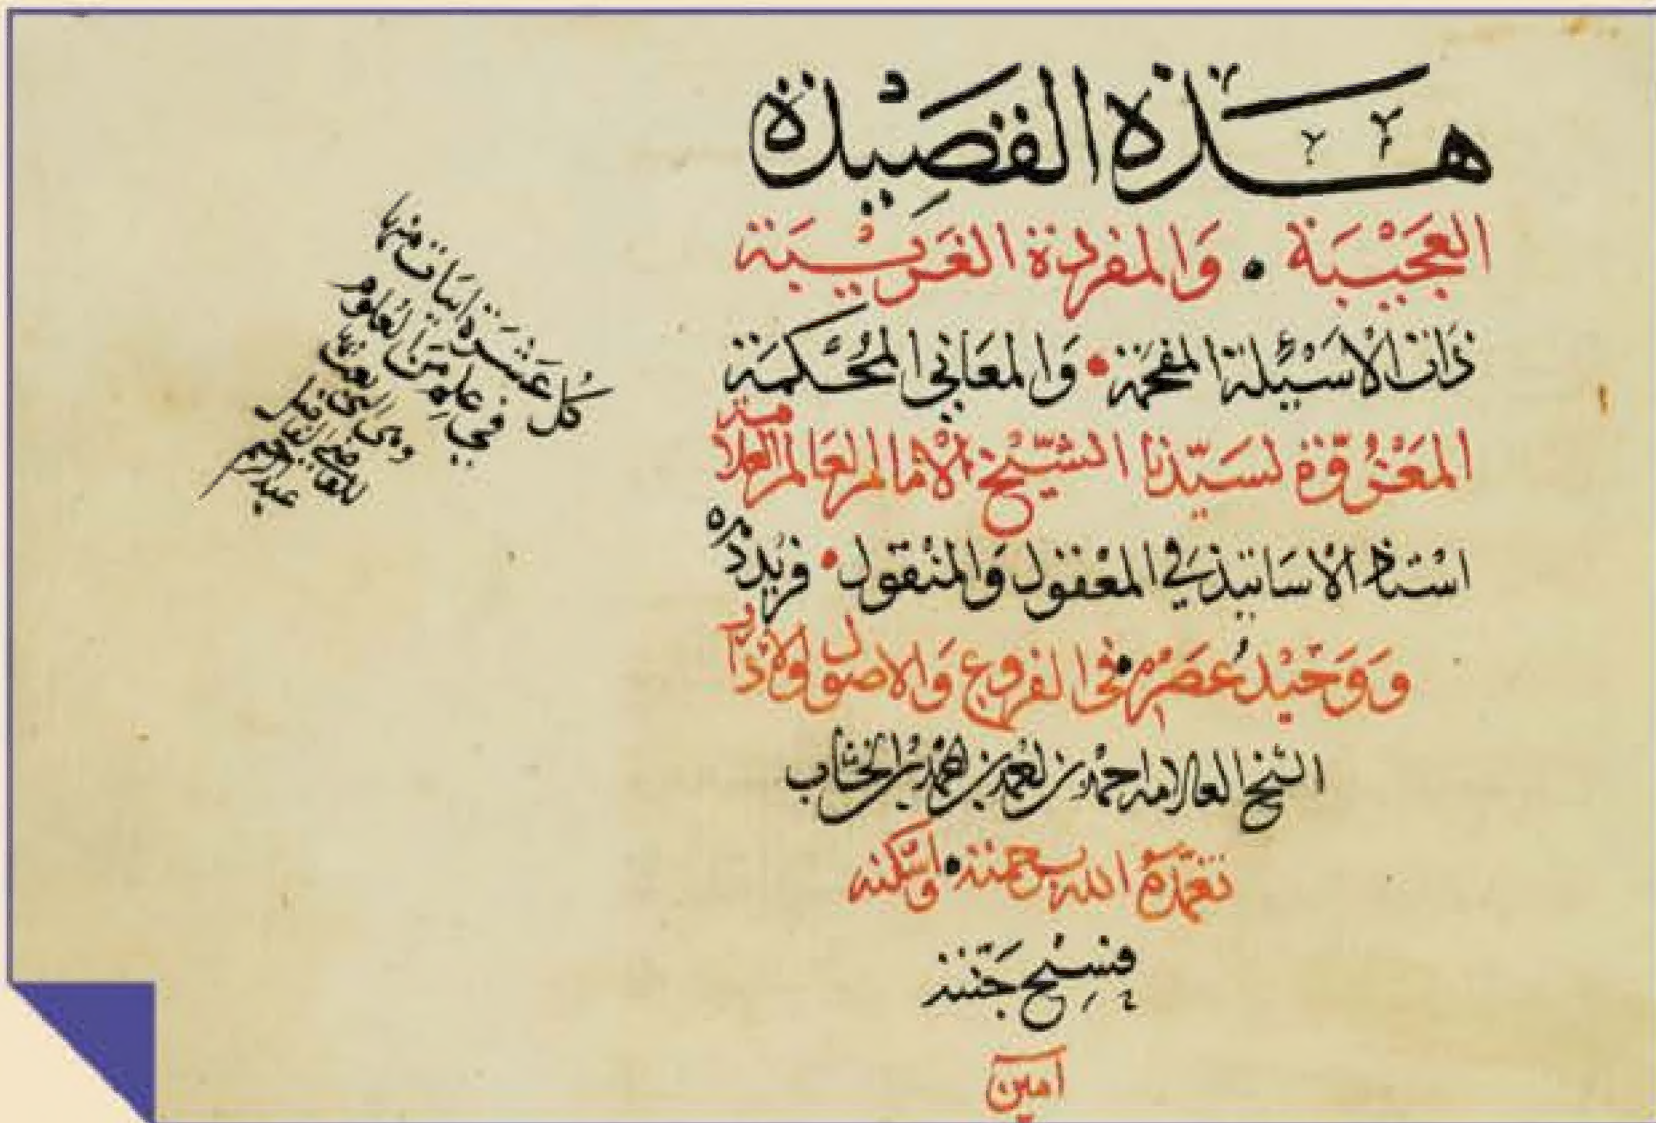 هذه القصيدة
العجيبة • والمفردة الغريبة
ذات الاسئيلة المفحمة • والمعاني المحكمة
المعزوة لسيدنا الشيخ الامام العالم العلامة
استاذ الاساتيذ في المعقول والمنقول • فريد دهره
ووحيد عصره • في الفروع والاصول والاداب
الشيخ العلامة احمد بن محمد بن
تغمده الله برحمته • واسكنه
فسيح جنته
امين
كل عشرة ابيات منها
في علم من العلوم
وهي التي بعث بها
للقاضي الفاضل
عبد الرحيم